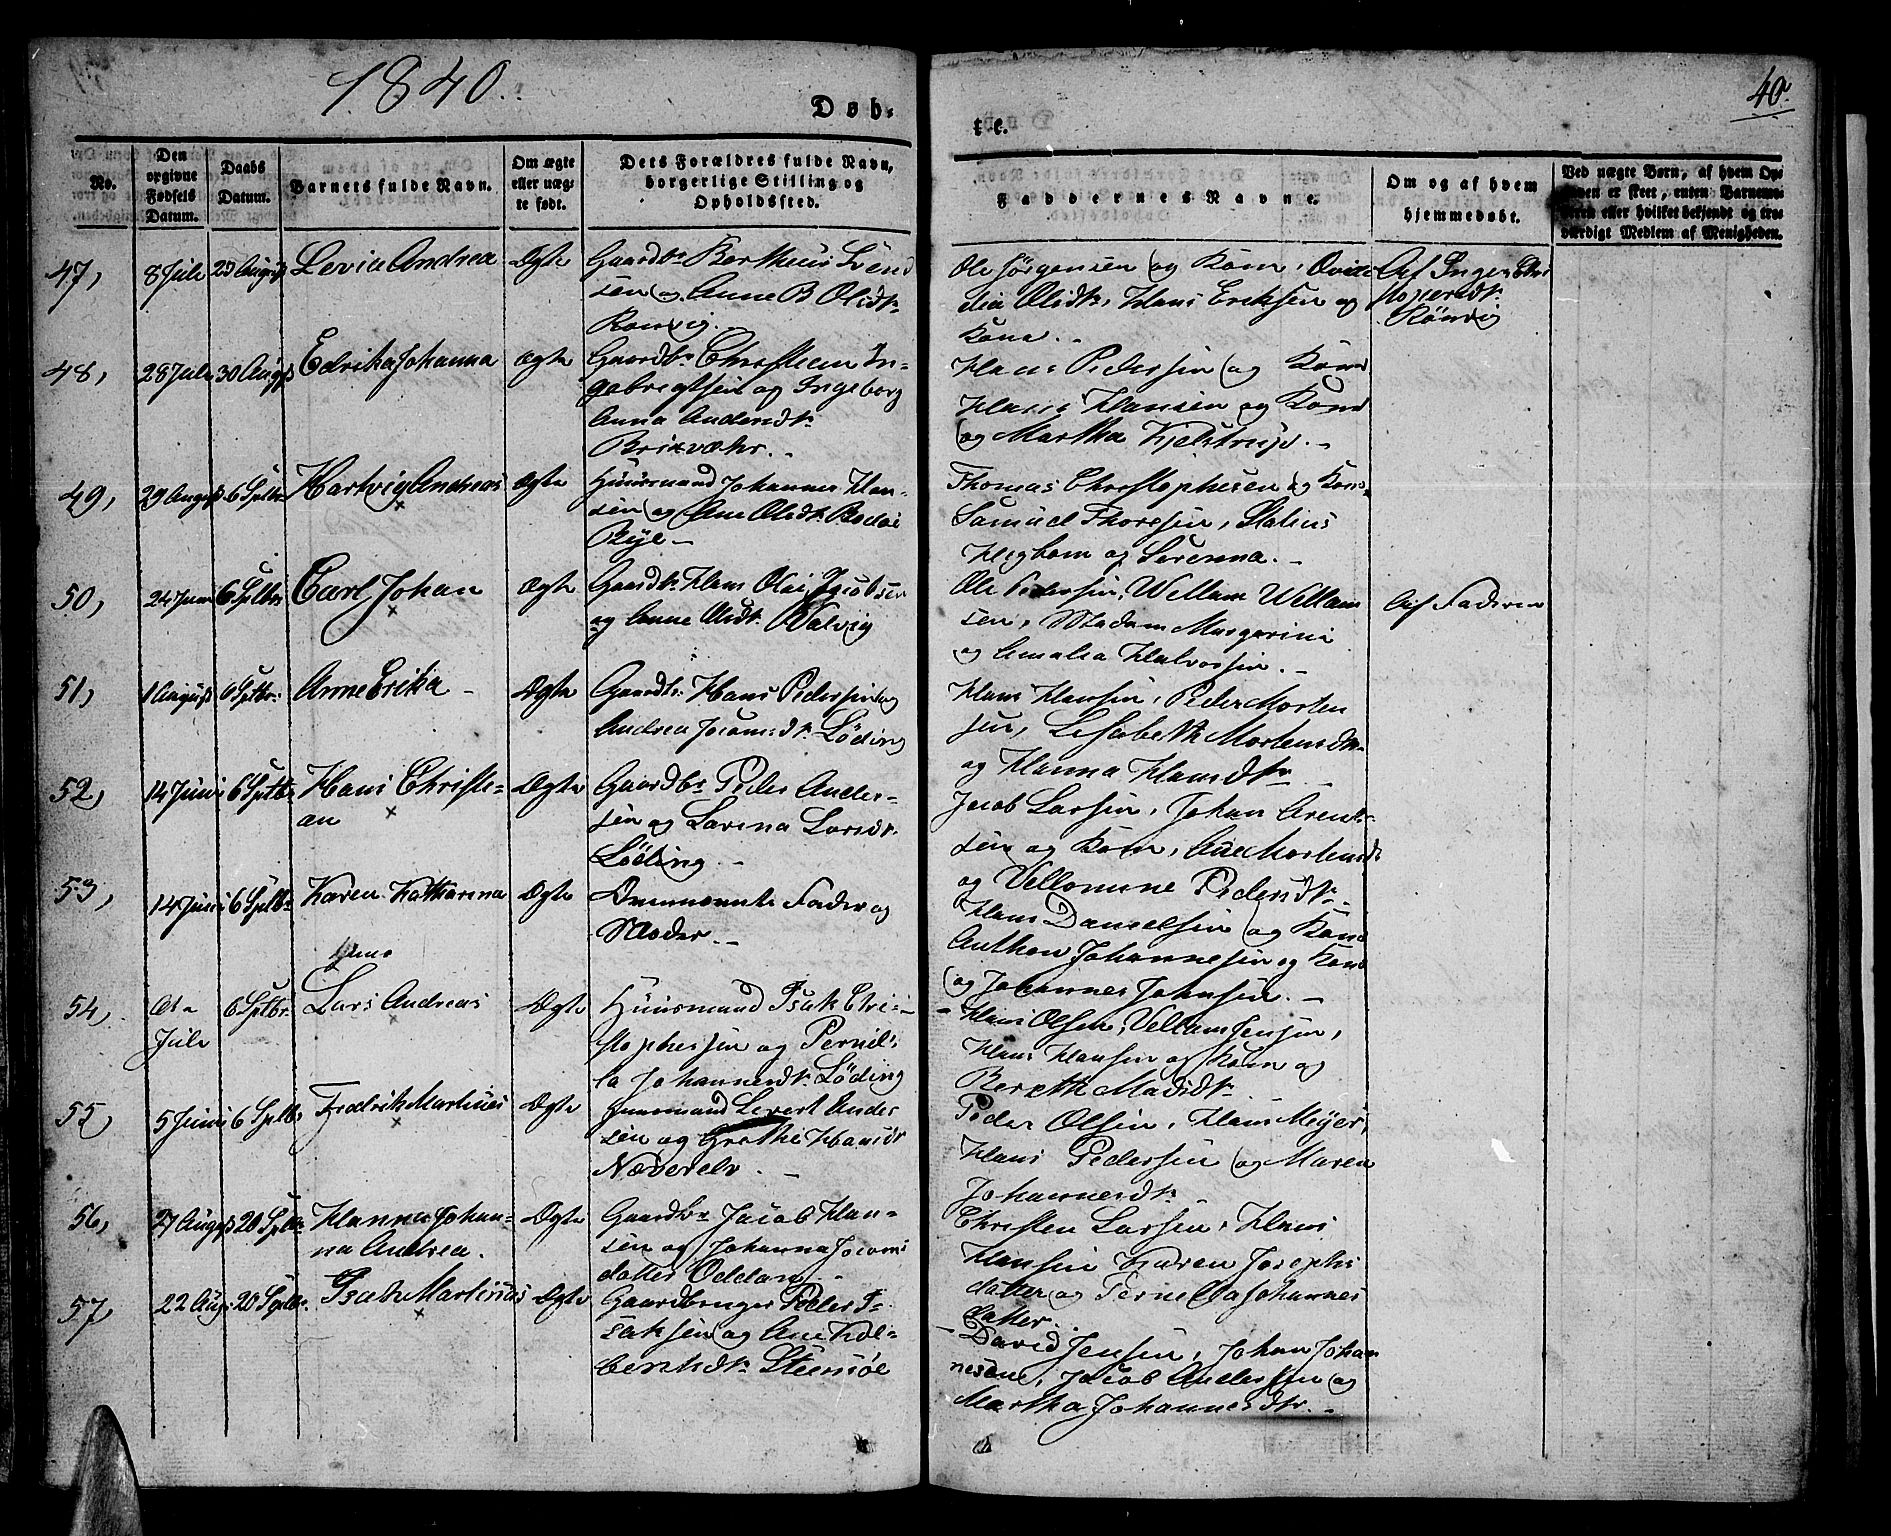 1840.
40.
Døb-
te.
No.
Den
orgivne
Fødsels
Datum.
Daabs
Datum.
Barnets fulde Navn.
Om ægte
eller uæg-
te født.
Dets Forældres fulde Navn,
borgerlige Stilling og
Opholdssted.
Faddernes Navne.
Om og af hvem
hjemmedøbt.
Ved uægte Børn, af hvem Op-
er skeet, enten Barnemo-
deren eller hvilket bekjendt og tro-
værdigt Medlem af Menigheden.
47,
8 Juli
Levia Andrea
Ægte
Gaardbr Bertheus Svend
sen og Anne B Olsdtr
Ole Jørgensen og Kone,
Olsdtr, Hans Eriksen og
Kone.
Af Inger
48,
28 Juli
30 Augst
Edrika Johanna
Ægte
Gaardbr Christian In-
gebrigtsen og Ingeborg
Anna Andersdtr
Brixvær.
Hans Pedersen og Kone
Hans Hansen og Kone
og Martha Kjelstrup.
49,
29 August
6 Sptbr
Hartvig Andreas
Ægte
Huusmand Johannes Han-
sen og Ane Olsdtr Bodøe
Bye
Thomas Christophersen og Kone
Samuel Thoresen, Statius
Hegbom og Serenna.
50,
24 Juni
6 Sptbr
Carl Johan
Ægte
Gaardbr Hans Olai Jacobsen
og Anne Olsdtr Valvig
Ole Pedersen, Wellam Wellam
sen, Madam Margarine
og Amalia Halvorsen.
Af Faderen
51,
1 August
6 Sptbr.
Anne Erika
Ægte
Gaardbr Hans Pedersen og
Andrea Jocomsdtr Løding
Hans Hansen, Peder Morten
sen, Lisabeth Mortensdtr
og Hanna Hansdtr
52,
14 Juni
6 Sptbr
Hans Christi-
an
Ægte
Gaardbr Peder Ander-
sen og Larina Larsdtr
Løding
Jacob Larsen, Johan Arent-
sen og Kone, Ane Mortensdtr
og Vellomine Pedersdtr
53,
14 Juni
6 Sptbr
Karen Katharina
Ægte
Ovennævnte Fader og
Moder.
Hans Danielsen og Kone
Anthon Johannesen og Kone
og Johannes Johnsen.
54,
Juli
6 Sptbr
Lars Andreas
Ægte
Huusmand Isak Chri-
stophersen og Pernil-
la Johannesdtr Løding
Hans Olsen, Vellam Jensen,
Hans Hansen og Kone og
Bereth Madsdtr
55,
5 Juni
6 Sptbr
Fredrik Martinus
Ægte
Huusmand Severt Ander
sen og Grethe Hansdtr
Næverelv.
Peder Olsen, Hans Meyer,
Hans Pedersen og Maren
Johannesdtr
56,
27 August
20 Sptbr
Hanna Johan-
na Andrea.
Ægte
Gaardbr Jacob Han-
sen og Johanna Jocoms
datter Oddan
Christen Larsen, Hans
Hansen Karen Josephs
datter og Pernella Johannes
datter.
57,
22 Augs
20 Sptbr
Isak Martinus
Ægte
Gaardbruger Peder I-
saksen og Ane Kol-
bentsdtr Steensøe
David Jensen, Johan Johan
nesen, Jacob Andersen og
Martha Johannesdtr.